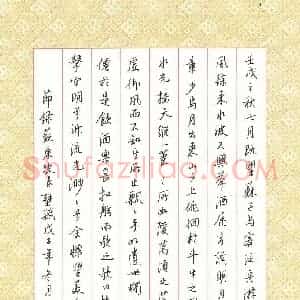 壬戌之秋七月既望蘇子与客泛舟游
風徐来水波不興举酒属客诵明月
章少焉月出東山上徘徊於斗牛之
水光接天纵一葦所如凌萬頃之
虚御风而不知其所止飘飘乎如遺世獨
仙於是飲酒樂甚扣舷而歌之歌曰桂
擊空明兮泝流光渺渺兮予懷望美
節録蘇東坡赤壁赋戊子年冬月
Shufaziliao.com